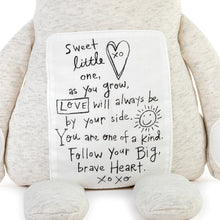 Sweet
little xo
one,
as you grow,
LOVE will always be
by your side.
You are one of a kind.
Follow Your Big,
brave Heart.
xoxo